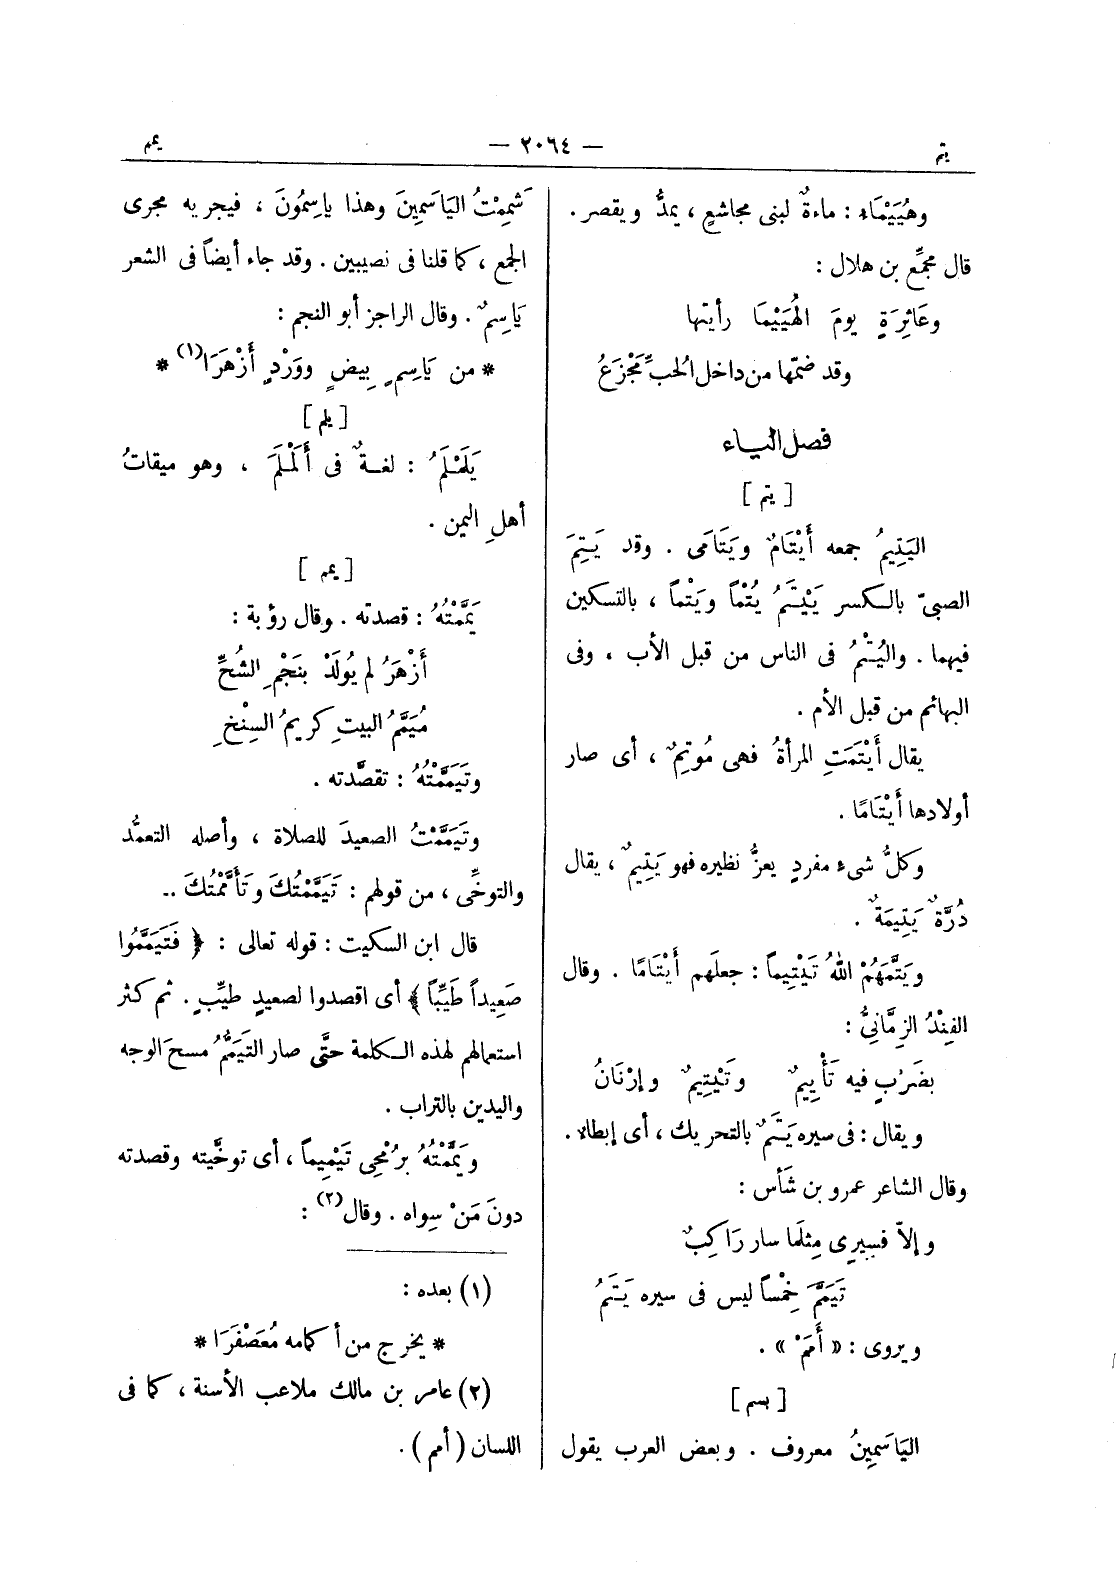 يتم
— ٢٠٦٤ —
يمم
وهُيَيْمَاء : ماءةٌ لبنى مجاشع ، يمدُّ ويقصر .
قال مجمِّع بن هلال :
وعَاثِرَةٍ يومَ الهُيَيْمَا رأيتها
وقد ضمّها من داخل الحبِّ مَجْزَعُ
فصل الياء
[ يتم ]
اليَتِيمُ جمعه أَيْتَامٌ ويَتَامَى . وقد يَتِمَ
الصبىّ بالكسر يَيْتَمُ يُتْماً ويَتْماً ، بالتسكين
فيهما . واليُتْمُ فى الناس من قبل الأب ، وفى
البهائم من قبل الأم .
يقال أَيْتَمَتِ المرأةُ فهى مُوتِمٌ ، أى صار
أولادها أَيْتَامًا .
وكلُّ شىء مفردٍ يعزُّ نظيره فهو يَتِيمٌ ، يقال
دُرَّةٌ يَتِيمَةٌ .
ويَتَّمَهُمْ اللهُ تَيْتِيماً : جعلَهم أَيْتَامًا . وقال
الفِنْدُ الزِمَّانِىُّ :
بضَرْبٍ فيه تَأْيِيمٌ وتَيْتِيمٌ وإرْنَانُ
ويقال : فى سيره يَتَمٌ بالتحريك ، أى إبطاء .
وقال الشاعر عمرو بن شَأس :
وإلاّ فسِيرِى مِثلَما سار رَاكِبٌ
تَيَمَّمَ خِمْساً ليس فى سيره يَتَمُ
ويروى : « أَمَمْ » .
[ يسم ]
اليَاسَمِينُ معروف . وبعض العرب يقول
شَمِمْتُ اليَاسَمِينَ وهذا ياسِمُونَ ، فيجريه مجرى
الجمع ، كما قلنا فى نصيبين . وقد جاء أيضاً فى الشعر
يَاسِمٌ . وقال الراجز أبو النجم :
* من يَاسِمٍ بِيضٍ ووَرْدٍ أَزْهَرَا (١) *
[ يلم ]
يَلَمْلَمُ : لغةٌ فى أَلَمْلَمَ ، وهو ميقاتُ
أهلِ اليمن .
[ يمم ]
يَمَّمْتُهُ : قصدته . وقال رؤبة :
أَزْهَرُ لم يُولَدْ بنَجْمِ الشُحِّ
مُيَمَّمُ البيتِ كريمُ السِنْخِ
وتَيَمَّمْتُهُ : تقصَّدته .
وتَيَمَّمْتُ الصعيدَ للصلاة ، وأصله التعمُّد
والتوخِّى ، من قولهم : تَيَمَّمْتُكَ وتَأَمَّمْتُكَ ..
قال ابن السكيت : قوله تعالى : ﴿ فَتَيَمَّمُوا
صَعِيداً طَيِّبًا ﴾ أى اقصدوا لصعيدٍ طيِّبٍ . ثم كثر
استعمالهم لهذه الكلمة حتَّى صار التَيَمُّمُ مسحَ الوجه
واليدين بالتراب .
ويَمَّمْتُهُ برُمْحِى تَيْمِيماً ، أى توخَّيته وقصدته
دونَ مَنْ سِواه . وقال (٢) :
(١) بعده :
* يخرج من أكمامه مُعَصْفَرَا *
(٢) عامر بن مالك ملاعب الأسنة ، كما فى
اللسان ( أمم ) .